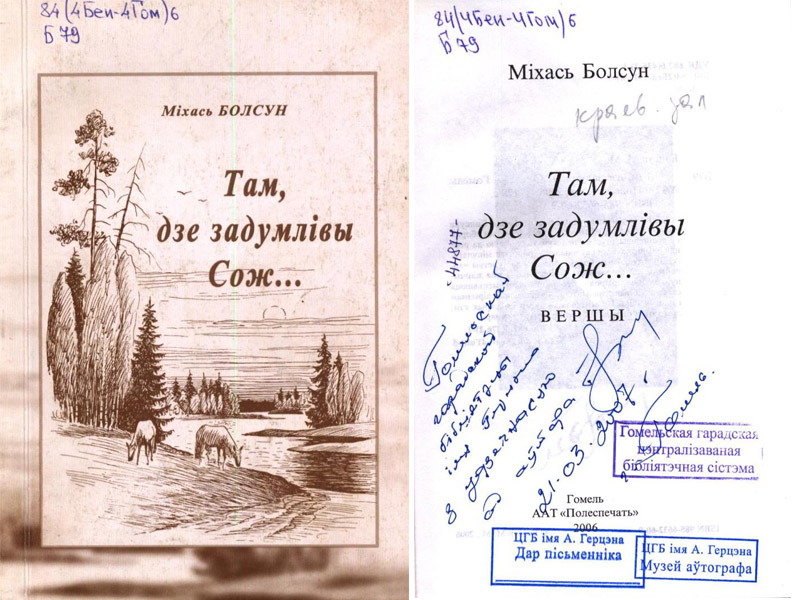 84(4Беи-4Гом)6
Б79
Міхась БОЛСУН
Там,
дзе задумлівы
Сож...
84(4Беи-4Гом)6
Б79
Міхась Болсун
краев. зал
Там,
дзе задумлівы
Сож...
ВЕРШЫ
44877-
Гомельскай
гарадской
імя Герцэна
з удзячнасцю
ад аўтара
21.03.2007 г.
г. Гомель.
Гомельская гарадская
цэнтралізаваная
бібліятэчная сістэма
Гомель
ААТ «Полеспечать»
2006
ЦГБ імя А. Герцэна
Дар пісьменніка
ЦГБ імя А. Герцэна
Музей аўтографа